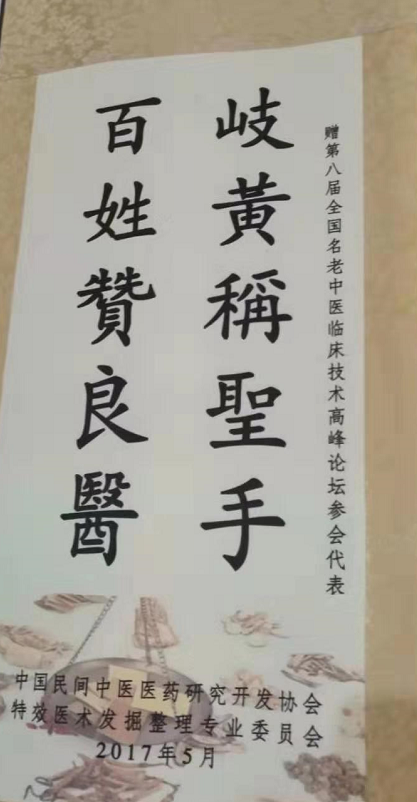 赠第八届全国名老中医临床技术高峰论坛参会代表
岐黃稱聖手
百姓贊良醫
中国民间中医医药研究开发协会
特效医术发掘整理专业委员会
2017年5月